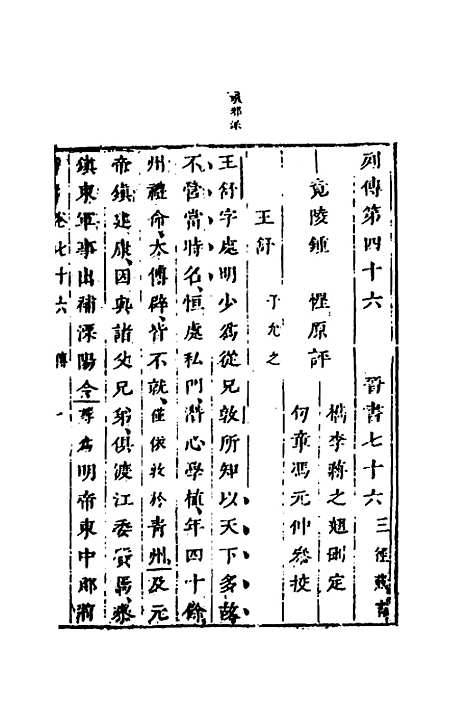 列傳第四十六　晉書七十六　三徑藏書
竟陵鍾　惺原評　檇李蔣之翹刪定
何章馮元仲參校
王舒　子允之
王舒字處明少爲從兄敦所知以天下多故
不營當時名恒處私門潛心學植年四十餘
州禮命太傅辟皆不就從依敦於青州及元
帝鎮建康因與諸父兄弟俱渡江委質焉參
鎮東軍事出補溧陽令尋爲明帝東中郎將
卷七十六　傳　一